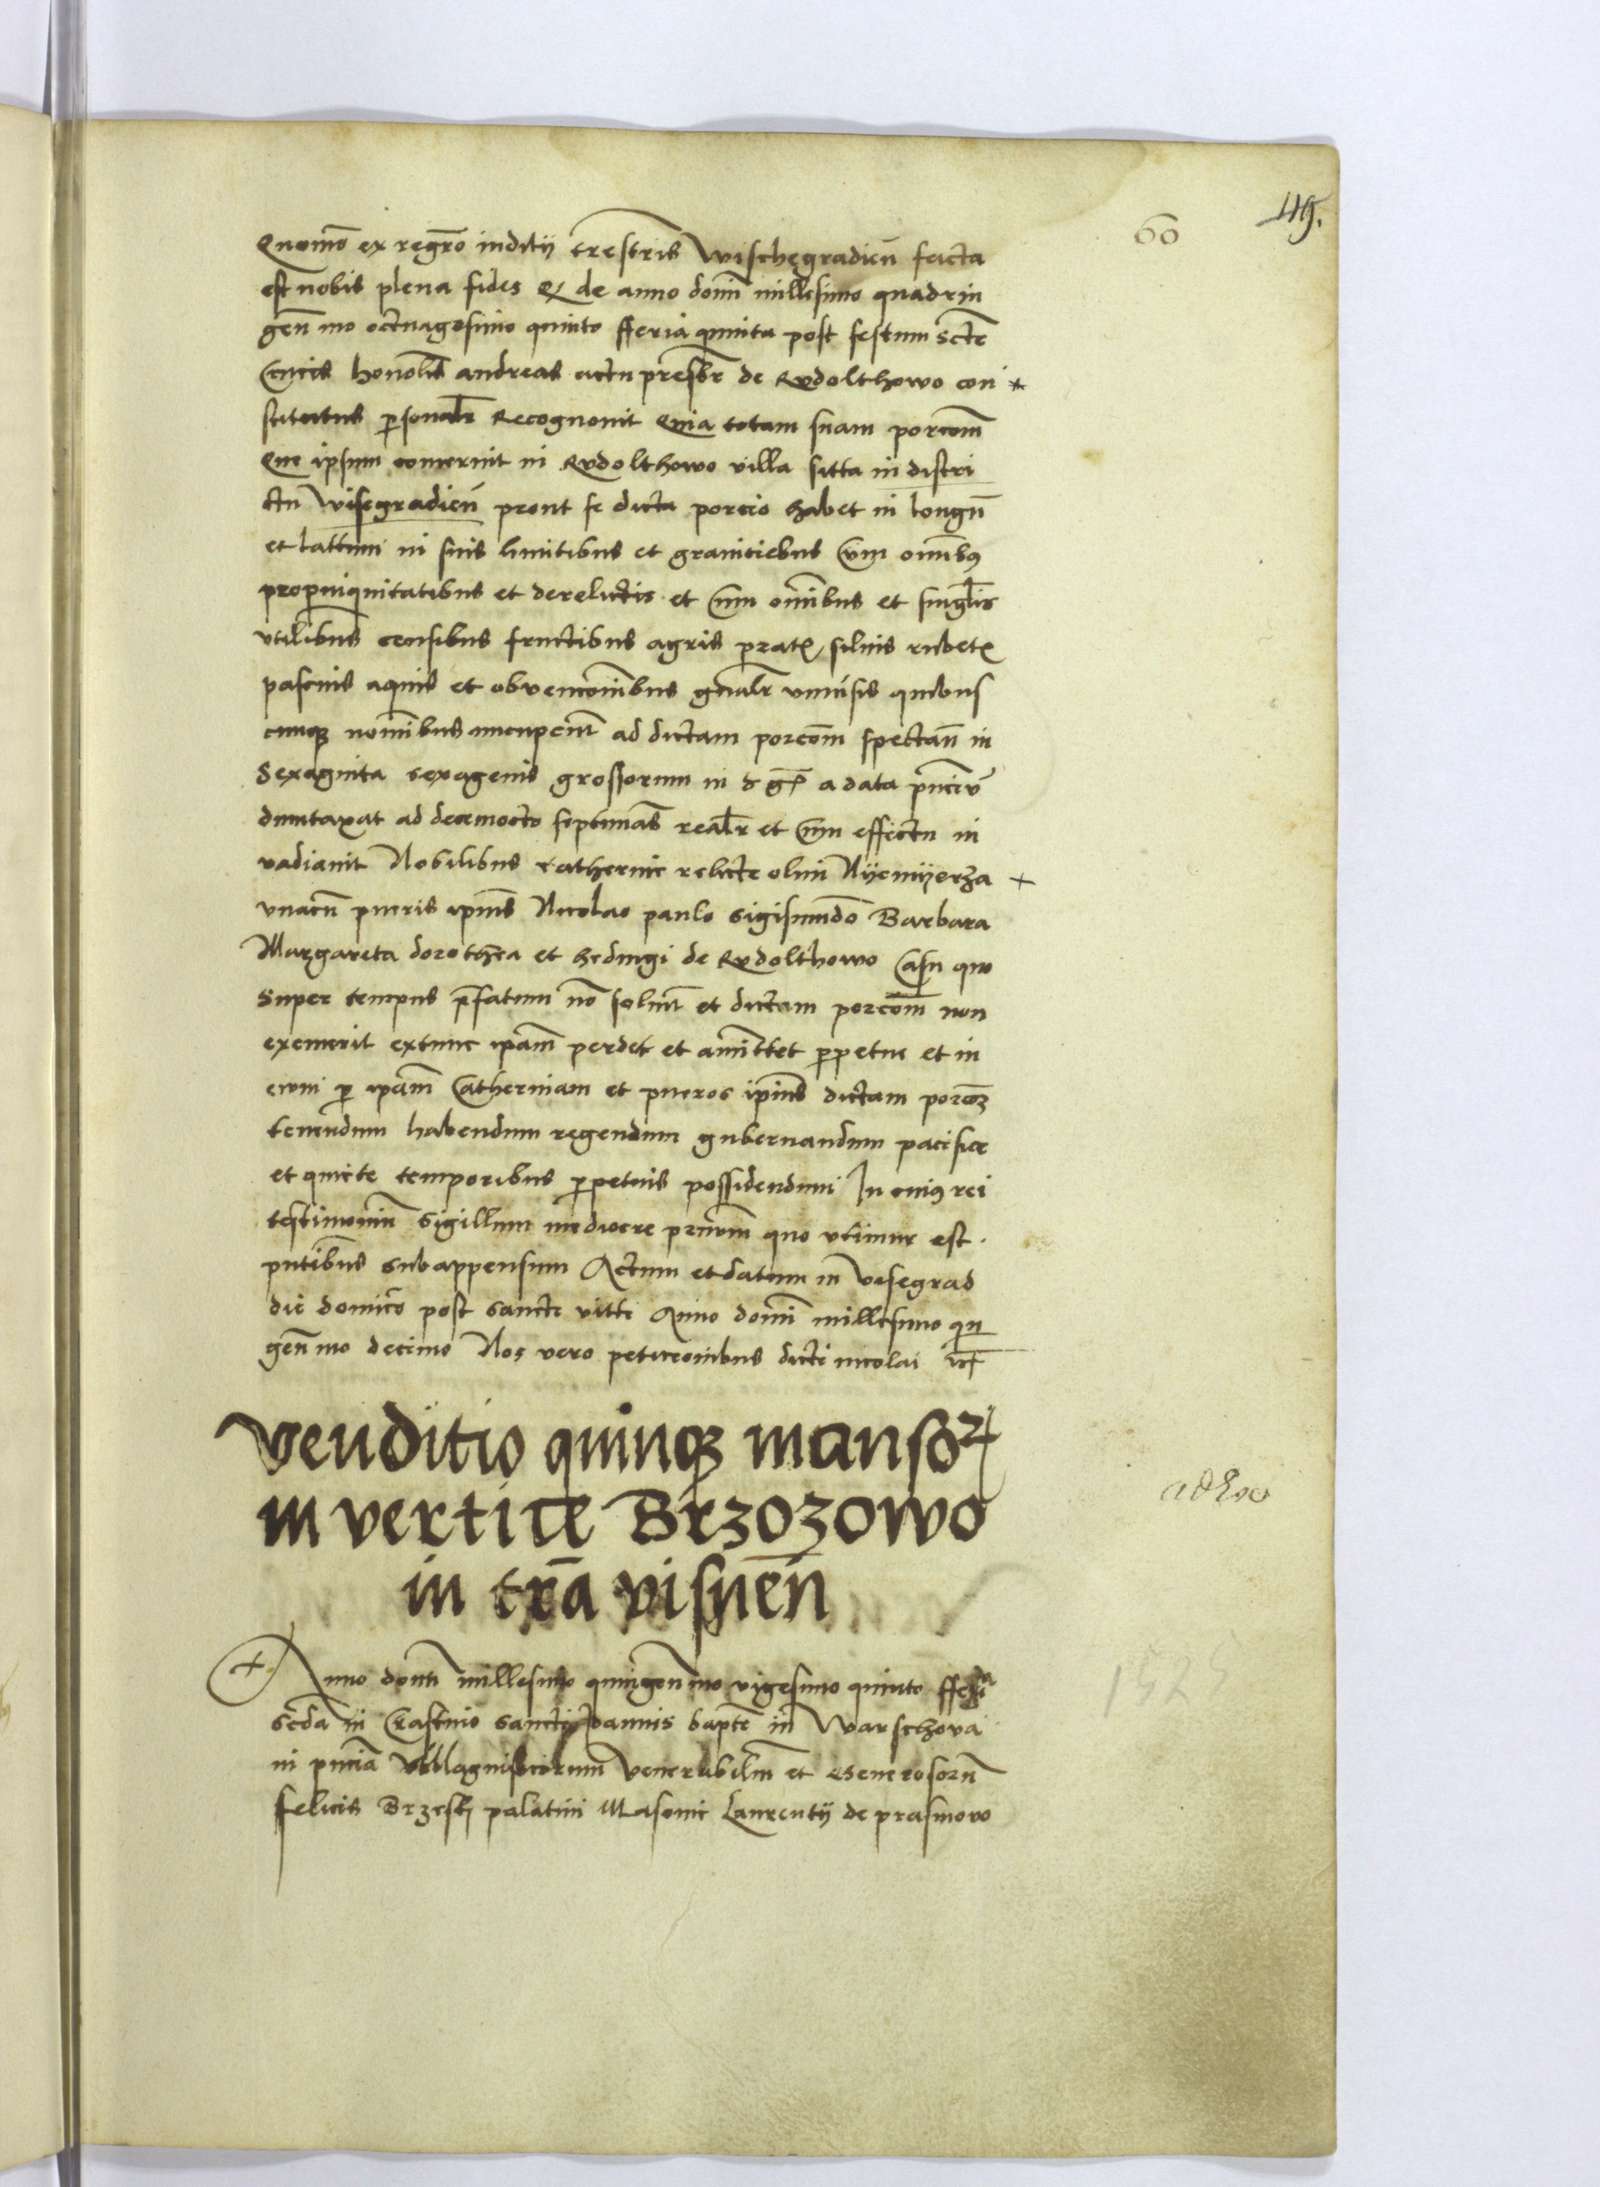 60
49.
Quomo ex regro inditij trestris Wischegradien facta
est nobis plena fides Q de anno domi millesimo quadrin
gen mo octuagesimo quinto fferia quinta post festum scte
Crucis honolis andreas actu presbr de Rvdolthowo con
stitutus personalr Recognouit Quia totam suam porcom
Que ipsum concernit in Rvdolthowo villa sitta in distri
ctu Wisegradien prout se dicta porcio habet in longu
et lattum in suis limitibus et granitiebus Cum omibus
propinquitatibus et derelictis et cum omibus et singlis
vtilibus censibus fructibus agris prat siluis rubet
pascuis aquis et obuencionibus gnalr vniuersis quibus
cunque nominibus nuncupent ad dictam porcom spectan in
Sexaginta sexagenis grossorum in gr a data pnciu
dumtaxat ad decemocto septimas realr et cum effectu in
vadiauit Nobilibus Catherine relicte olim Nyemyerza
vnacu pueris ipius Nicolao paulo sigismundo Barbara
Margareta dorothea et hedingi de Rvdolthowo Casu quo
Super tempus pfatum no soluit et dictam porcom non
exemerit extunc ipam perdet et amittet ppetue et in
ewm p ipam Catherinam et pueros ipius dictam porcoz
tenendum habendum regendum gubernandum pacifice
et quiete temporibus ppetuis possidendum In cuius rei
testimoniu Sigillum mediocre pruom quo vtimur est
pntibus subappensum Actum et datum in Visegrad
die domico post sancte vitti Anno domi millesimo quin
gen mo decimo Nos vero peticionibus dicti nicolai
Venditio quinque mansor
in vertice Brzozowo
in tra visnen
adhoc
Anno domi millesimo quingen mo vigesimo quinto fferia
scda in Crastino sancti Joannis bapte in Warschova
in pncia Magnificorum Venerabilm et Generosoru
felicis Brzesky palatini Masouie Laurentij de prasmovo
152